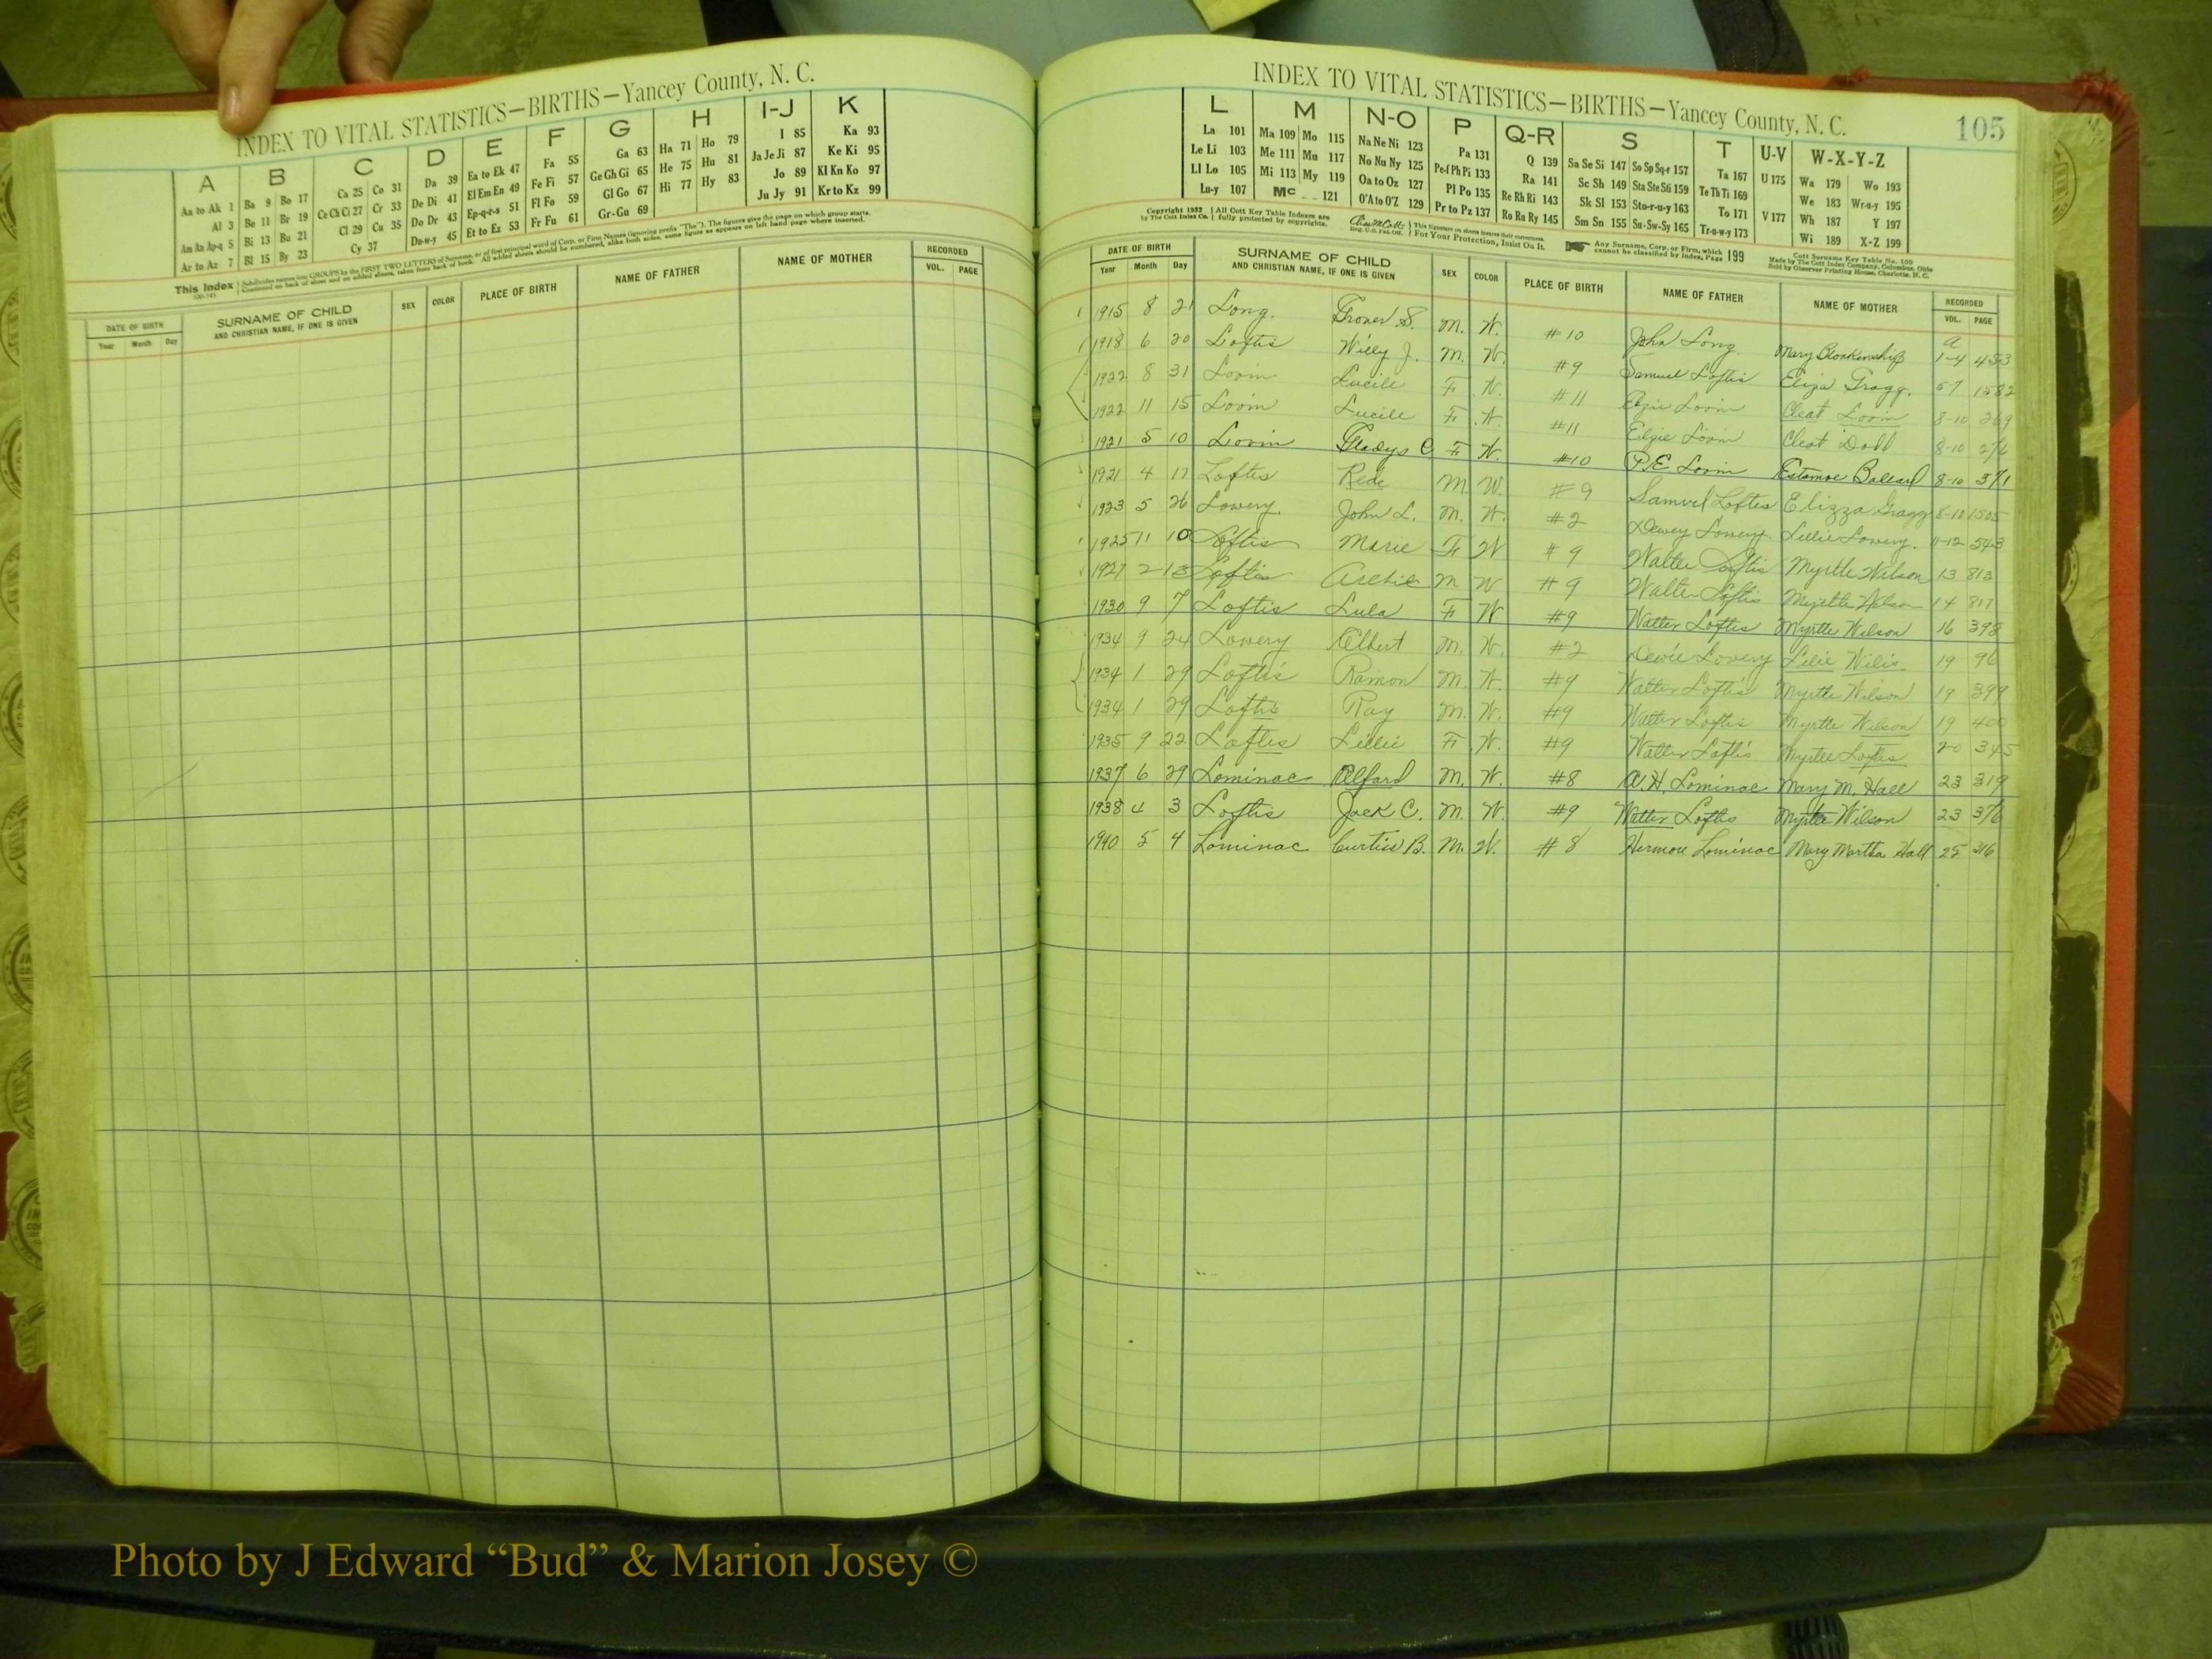 INDEX TO VITAL STATISTICS—BIRTHS—Yancey County, N. C.
A B C D E F G H I-J K
Aa to Ak 1 Ba 9 Bo 17 Ca 25 Co 31 Da 39 Ea to Ek 47 Fa 55 Ga 63 Ha 71 Ho 79 I 85 Ka 93
Al 3 Be 11 Br 19 Ce Ch Ci 27 Cr 33 De Di 41 El Em En 49 Fe Fi 57 Ge Gh Gi 65 He 75 Hu 81 Ja Je Ji 87 Ke Ki 95
Am An Ap-q 5 Bi 13 Bu 21 Cl 29 Cu 35 Do Dr 43 Ep-q-r-s 51 Fl Fo 59 Gl Go 67 Hi 77 Hy 83 Jo 89 Kl Kn Ko 97
Ar to Az 7 Bl 15 By 23 Cy 37 Du-w-y 45 Et to Ez 53 Fr Fu 61 Gr-Gu 69 Ju Jy 91 Kr to Kz 99
This Index Subdivides names into GROUPS by the FIRST TWO LETTERS of Surname, or of first principal word of Corp. or Firm Names (ignoring prefix "The"). The figures give the page on which group starts.
Continued on back of sheet and on added sheets, taken from back of book. All added sheets should be numbered, alike both sides, same figure as appears on left hand page where inserted.
DATE OF BIRTH SURNAME OF CHILD SEX COLOR PLACE OF BIRTH NAME OF FATHER NAME OF MOTHER RECORDED
Year Month Day AND CHRISTIAN NAME, IF ONE IS GIVEN VOL. PAGE
INDEX TO VITAL STATISTICS—BIRTHS—Yancey County, N. C. 105
L M N-O P Q-R S T U-V W-X-Y-Z
La 101 Ma 109 Mo 115 Na Ne Ni 123 Pa 131 Q 139 Sa Se Si 147 So Sp Sq-r 157 Ta 167 U 175 Wa 179 Wo 193
Le Li 103 Me 111 Mu 117 No Nu Ny 125 Pe-f Ph Pi 133 Ra 141 Sc Sh 149 Sta Ste Sti 159 Te Th Ti 169 We 183 Wr-u-y 195
Ll Lo 105 Mi 113 My 119 Oa to Oz 127 Pl Po 135 Re Rh Ri 143 Sk Sl 153 Sto-r-u-y 163 To 171 V 177 Wh 187 Y 197
Lu-y 107 Mc 121 O'A to O'Z 129 Pr to Pz 137 Ro Ru Ry 145 Sm Sn 155 Su-Sw-Sy 165 Tr-u-w-y 173 Wi 189 X-Z 199
Copyright 1932 by The Cott Index Co. All Cott Key Table Indexes are fully protected by copyrights. This signature on sheets insures their correctness. For Your Protection, Insist On It. Any Surname, Corp. or Firm, which cannot be classified by Index, Page 199
Cott Surname Key Table No. 100
Made by The Cott Index Company, Columbus, Ohio
Sold by Observer Printing House, Charlotte, N. C.
DATE OF BIRTH SURNAME OF CHILD SEX COLOR PLACE OF BIRTH NAME OF FATHER NAME OF MOTHER RECORDED
Year Month Day AND CHRISTIAN NAME, IF ONE IS GIVEN VOL. PAGE
1915 8 21 Long. Grover S. M. W. #10 John Long Mary Blankenship 1-4 453
1918 6 20 Loftis Willy J. M. W. #9 Samuel Loftis Eliza Gragg. 57 1582
1922 8 31 Lovin Lucile F. W. #11 Elzie Lovin Cleat Lovin 8-10 269
1922 11 15 Lovin Lucile F. W. #11 Elzie Lovin Cleat Dodd 8-10 276
1921 5 10 Lovin Gladys C. F. W. #10 P.E. Lovin Ballard 8-10 371
1921 4 17 Loftes Rede M W. #9 Samuel Loftes Elizza Gragg 8-10 1505
1923 5 26 Lowery. John L. M. W. #2 Dewey Lowery Lillie Lowery. 11-12 543
1925 11 10 Loftis Marie F. W #9 Walter Loftis Myrtle Wilson 13 813
1927 2 13 Loftis Archie M W #9 Walter Loftis Myrtle Wilson 14 817
1930 9 7 Loftis Lula F W #9 Walter Loftis Myrtle Wilson 16 398
1934 9 24 Lowery Albert M. W. #2 Dewie Lowery Lilie Wilis 19 96
1934 1 29 Loftis Ramon M. W. #9 Walter Loftis Myrtle Wilson 19 399
1934 1 29 Loftis Ray M. W. #9 Walter Loftis Myrtle Wilson 19 400
1935 9 22 Loftis Lillie F. W. #9 Walter Loftis Myrtle Loftis 20 345
1937 6 29 Lominac Alfard M. W. #8 W. H. Lominac Mary M. Hall 23 319
1938 4 3 Loftis Jack C. M. W. #9 Walter Loftis Myrtle Wilson 23 376
1940 5 4 Lominac Curtiss B. M. W. #8 Hermon Lominac Mary Martha Hall 25 316
Photo by J Edward “Bud” & Marion Josey ©